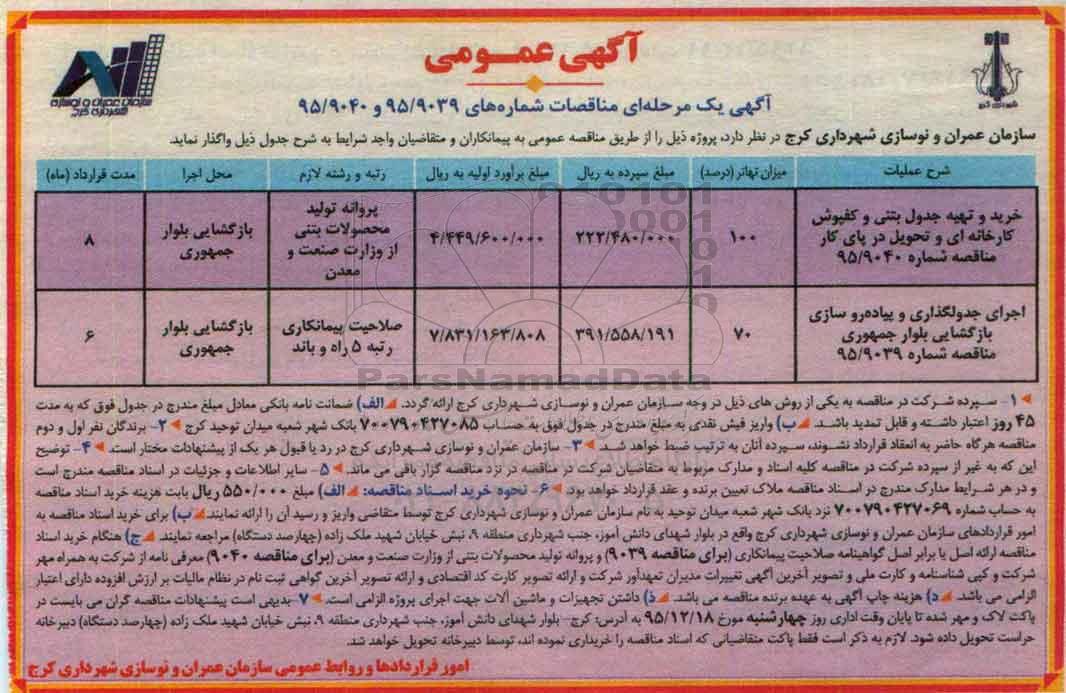 آگهی عمومی
سازمان عمران و نوسازی
شهرداری کرج
شهرداری کرج
آگهی یک مرحله‌ای مناقصات شماره‌های ۹۵/۹۰۳۹ و ۹۵/۹۰۴۰
سازمان عمران و نوسازی شهرداری کرج در نظر دارد، پروژه ذیل را از طریق مناقصه عمومی به پیمانکاران و متقاضیان واجد شرایط به شرح جدول ذیل واگذار نماید.
شرح عملیات میزان تهاتر (درصد) مبلغ سپرده به ریال مبلغ برآورد اولیه به ریال رتبه و رشته لازم محل اجرا مدت قرارداد (ماه)
خرید و تهیه جدول بتنی و کفپوش
کارخانه ای و تحویل در پای کار
مناقصه شماره ۹۵/۹۰۴۰
۱۰۰
۲۲۲/۴۸۰/۰۰۰
۴/۴۴۹/۶۰۰/۰۰۰
پروانه تولید
محصولات بتنی
از وزارت صنعت و
معدن
بازگشایی بلوار
جمهوری
۸
اجرای جدولگذاری و پیاده‌رو سازی
بازگشایی بلوار جمهوری
مناقصه شماره ۹۵/۹۰۳۹
۷۰
۳۹۱/۵۵۸/۱۹۱
۷/۸۳۱/۱۶۳/۸۰۸
صلاحیت پیمانکاری
رتبه ۵ راه و باند
بازگشایی بلوار
جمهوری
۶
ParsNamadData
۱- سپرده شرکت در مناقصه به یکی از روش های ذیل در وجه سازمان عمران و نوسازی شهرداری کرج ارائه گردد. الف) ضمانت نامه بانکی معادل مبلغ مندرج در جدول فوق که به مدت
۴۵ روز اعتبار داشته و قابل تمدید باشد. ب) واریز فیش نقدی به مبلغ مندرج در جدول فوق به حساب ۷۰۰۷۹۰۴۲۷۰۸۵ بانک شهر شعبه میدان توحید کرج ۲- برندگان نفر اول و دوم
مناقصه هرگاه حاضر به انعقاد قرارداد نشوند، سپرده آنان به ترتیب ضبط خواهد شد. ۳- سازمان عمران و نوسازی شهرداری کرج در رد یا قبول هر یک از پیشنهادات مختار است. ۴- توضیح
این که به غیر از سپرده شرکت در مناقصه کلیه اسناد و مدارک مربوط به متقاضیان شرکت در مناقصه در نزد مناقصه گزار باقی می ماند. ۵- سایر اطلاعات و جزئیات در اسناد مناقصه مندرج است
و در هر شرایط مدارک مندرج در اسناد مناقصه ملاک تعیین برنده و عقد قرارداد خواهد بود. ۶- نحوه خرید اسناد مناقصه: الف) مبلغ ۵۵۰/۰۰۰ ریال بابت هزینه خرید اسناد مناقصه
به حساب شماره ۷۰۰۷۹۰۴۲۷۰۶۹ نزد بانک شهر شعبه میدان توحید به نام سازمان عمران و نوسازی شهرداری کرج توسط متقاضی واریز و رسید آن را ارائه نمایند. ب) برای خرید اسناد مناقصه به
امور قراردادهای سازمان عمران و نوسازی شهرداری کرج واقع در بلوار شهدای دانش آموز، جنب شهرداری منطقه ۹، نبش خیابان شهید ملک زاده (چهارصد دستگاه) مراجعه نمایند. ج) هنگام خرید اسناد
مناقصه ارائه اصل یا برابر اصل گواهینامه صلاحیت پیمانکاری (برای مناقصه ۹۰۳۹) و پروانه تولید محصولات بتنی از وزارت صنعت و معدن (برای مناقصه ۹۰۴۰) معرفی نامه از شرکت به همراه مهر
شرکت و کپی شناسنامه و کارت ملی و تصویر آخرین آگهی تغییرات مدیران تعهدآور شرکت و ارائه تصویر کارت کد اقتصادی و ارائه تصویر آخرین گواهی ثبت نام در نظام مالیات بر ارزش افزوده دارای اعتبار
الزامی می باشد. د) هزینه چاپ آگهی به عهده برنده مناقصه می باشد. ذ) داشتن تجهیزات و ماشین آلات جهت اجرای پروژه الزامی است. ۷- بدیهی است پیشنهادات مناقصه گران می بایست در
پاکت لاک و مهر شده تا پایان وقت اداری روز چهارشنبه مورخ ۹۵/۱۲/۱۸ به آدرس: کرج- بلوار شهدای دانش آموز، جنب شهرداری منطقه ۹، نبش خیابان شهید ملک زاده (چهارصد دستگاه) دبیرخانه
حراست تحویل داده شود. لازم به ذکر است فقط پاکت متقاضیانی که اسناد مناقصه را خریداری نموده اند، توسط دبیرخانه تحویل خواهد شد.
امور قراردادها و روابط عمومی سازمان عمران و نوسازی شهرداری کرج